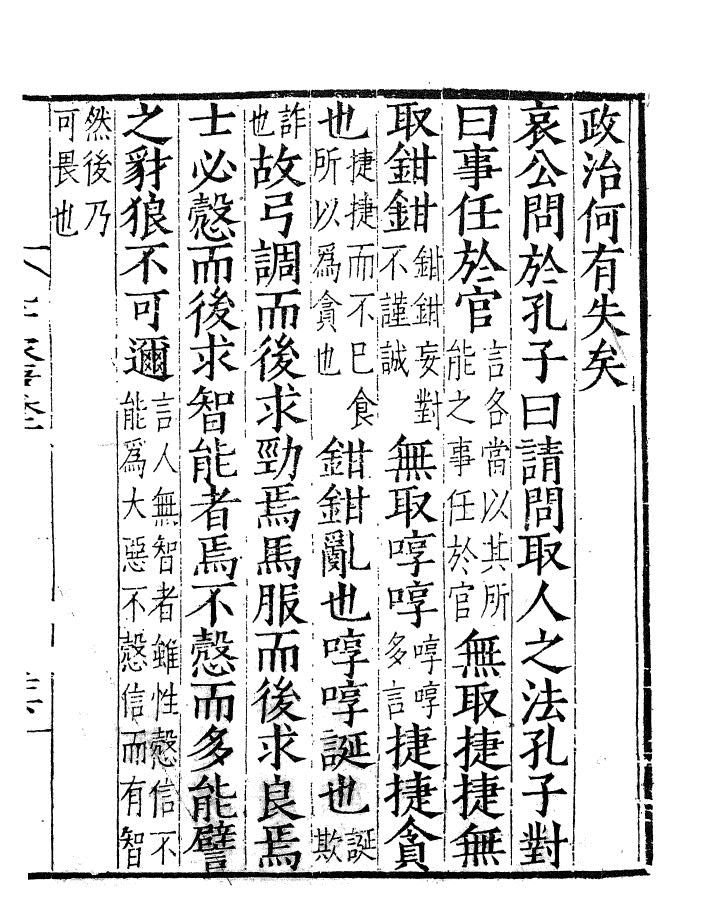 政治何有失矣
哀公問於孔子曰請問取人之法孔子對
曰事任於官言各當以其所能之事任於官無取捷捷無
取鉗鉗鉗鉗妄對不謹誠無取啍啍啍啍多言捷捷貪
也捷捷而不巳食所以爲貪也鉗鉗亂也啍啍誕也誕欺
詐也故弓調而後求勁焉馬服而後求良焉
士必愨而後求智能者焉不愨而多能譬
之豺狼不可邇言人無智者雖性愨信不能爲大惡不愨信而有智
然後乃可畏也